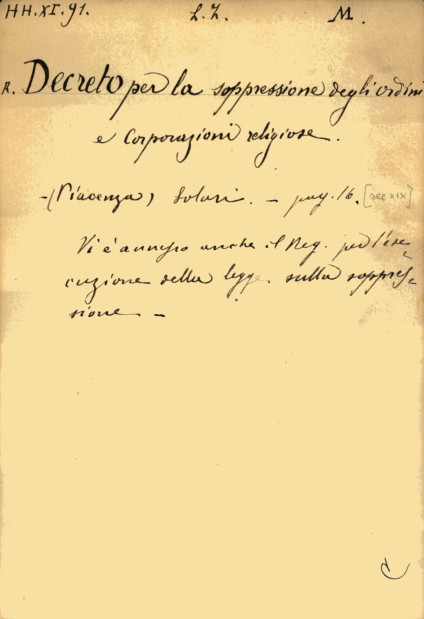 HH.XI.91. L.Z. M.
R. Decreto per la soppressione degli ordini
e Corporazioni religiose.
- (Piacenza) Solari. - pag. 16. [sec XIX]
Vi è annesso anche il Reg. per l'ese=
cuzione della legge sulla soppres=
sione -